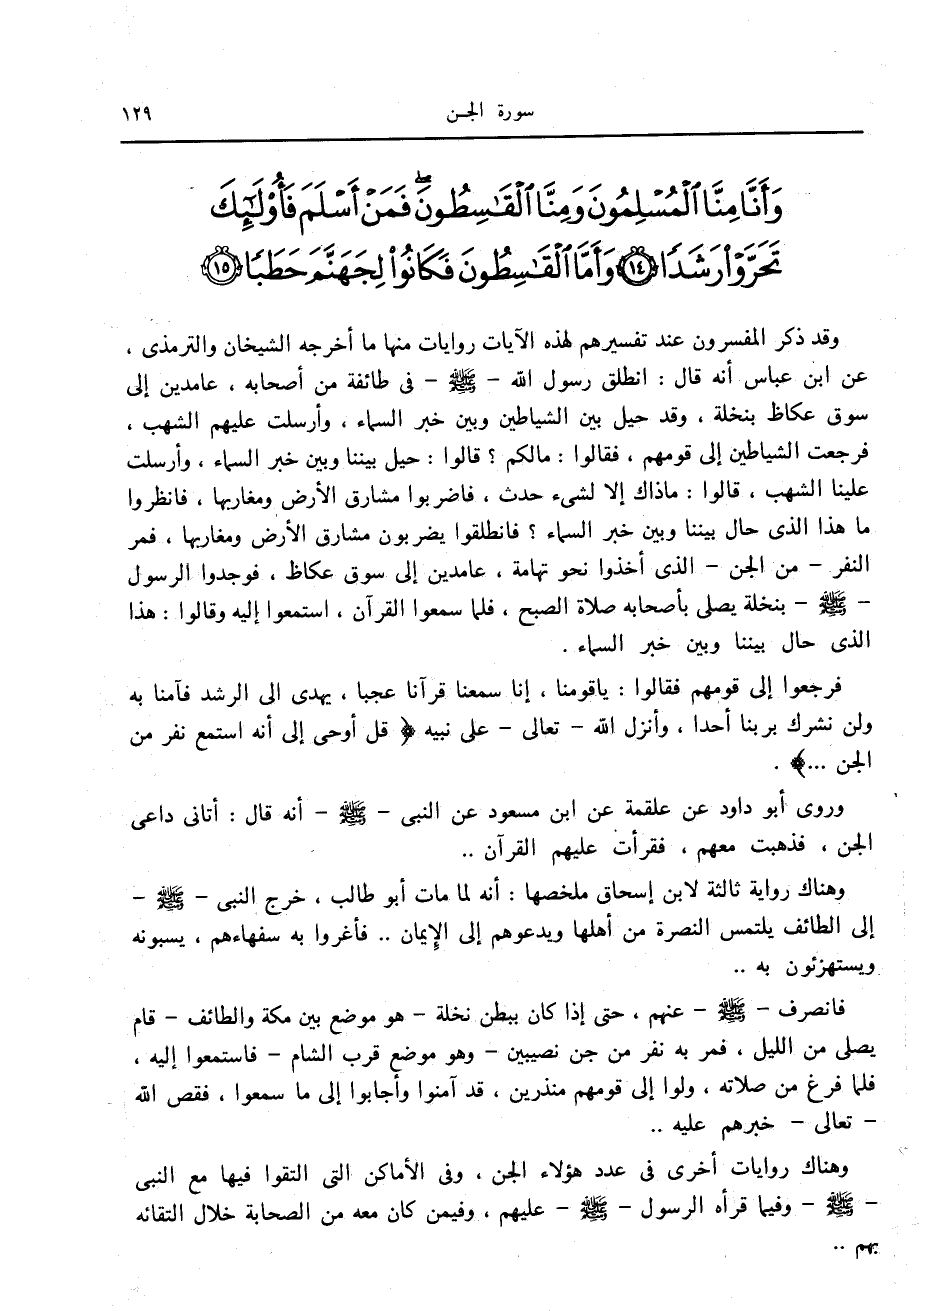 سورة الجـن ١٢٩
وَأَنَّا مِنَّا ٱلْمُسْلِمُونَ وَمِنَّا ٱلْقَٰسِطُونَ ۖ فَمَنْ أَسْلَمَ فَأُو۟لَٰٓئِكَ
تَحَرَّوْا۟ رَشَدًا ﴿١٤﴾ وَأَمَّا ٱلْقَٰسِطُونَ فَكَانُوا۟ لِجَهَنَّمَ حَطَبًا ﴿١٥﴾
وقد ذكر المفسرون عند تفسيرهم لهذه الآيات روايات منها ما أخرجه الشيخان والترمذى ،
عن ابن عباس أنه قال : انطلق رسول الله – ﷺ – فى طائفة من أصحابه ، عامدين إلى
سوق عكاظ بنخلة ، وقد حيل بين الشياطين وبين خبر السماء ، وأرسلت عليهم الشهب ،
فرجعت الشياطين إلى قومهم ، فقالوا : مالكم ؟ قالوا : حيل بيننا وبين خبر السماء ، وأرسلت
علينا الشهب ، قالوا : ماذاك إلا لشىء حدث ، فاضربوا مشارق الأرض ومغاربها ، فانظروا
ما هذا الذى حال بيننا وبين خبر السماء ؟ فانطلقوا يضربون مشارق الأرض ومغاربها ، فمر
النفر – من الجن – الذى أخذوا نحو تهامة ، عامدين إلى سوق عكاظ ، فوجدوا الرسول
– ﷺ – بنخلة يصلى بأصحابه صلاة الصبح ، فلما سمعوا القرآن ، استمعوا إليه وقالوا : هذا
الذى حال بيننا وبين خبر السماء .
فرجعوا إلى قومهم فقالوا : ياقومنا ، إنا سمعنا قرآنا عجبا ، يهدى الى الرشد فآمنا به
ولن نشرك بربنا أحدا ، وأنزل الله – تعالى – على نبيه ﴿ قل أوحى إلى أنه استمع نفر من
الجن ...﴾ .
وروى أبو داود عن علقمة عن ابن مسعود عن النبى – ﷺ – أنه قال : أتانى داعى
الجن ، فذهبت معهم ، فقرأت عليهم القرآن ..
وهناك رواية ثالثة لابن إسحاق ملخصها : أنه لما مات أبو طالب ، خرج النبى – ﷺ –
إلى الطائف يلتمس النصرة من أهلها ويدعوهم إلى الإيمان .. فأغروا به سفهاءهم ، يسبونه
ويستهزئون به ..
فانصرف – ﷺ – عنهم ، حتى إذا كان ببطن نخلة – هو موضع بين مكة والطائف – قام
يصلى من الليل ، فمر به نفر من جن نصيبين – وهو موضع قرب الشام – فاستمعوا إليه ،
فلما فرغ من صلاته ، ولوا إلى قومهم منذرين ، قد آمنوا وأجابوا إلى ما سمعوا ، فقص الله
– تعالى – خبرهم عليه ..
وهناك روايات أخرى فى عدد هؤلاء الجن ، وفى الأماكن التى التقوا فيها مع النبى
– ﷺ – وفيما قرأه الرسول – ﷺ – عليهم ، وفيمن كان معه من الصحابة خلال التقائه
بهم ..